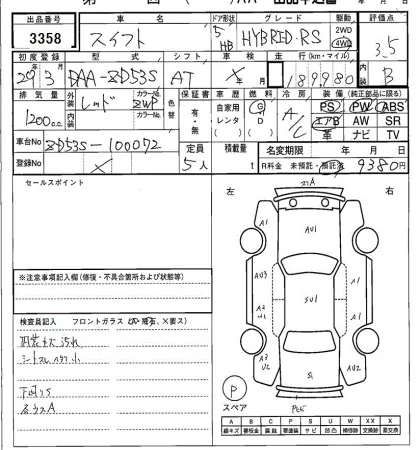 出品番号 車名 ドア形状 グレード 駆動 評価点
3358 スイフト 5 HB HYBRID・RS 2WD 4WD 3.5
初度登録 型式 シフト 車検 走行(km・マイル) 内装
29年3月 DAA-ZD53S AT 年 月 189,980 B
排気量 外装 カラーNo. 色替 保証書 車歴 燃料 冷房 装備(純正部品に限る)
1200cc 内装 レッド ZWP 有・無 自家用 レンタ G D A/C PS PW ABS
カラーNo. エアB AW SR
革 ナビ TV
車台No ZD53S-100072 定員 積載量 名変期限 年 月 日
登録No 5人 t R料金 未預託・預託済 9380円
セールスポイント
左 右
A1 AU1 A1
AU3 A1
A2 SU1 A1
U1
A3 AU2
U2 S1
※注意事項記入欄(修復・不具合箇所および状態等)
検査員記入 フロントガラス (X補修、×要ス)
内装キズ汚れ
下回りS
各ウスA
P
スペア
A B C P S U W X XX
線キズ 要板金 腐蝕 要塗装 サビ 凹凸 補修跡 交換跡 要交換